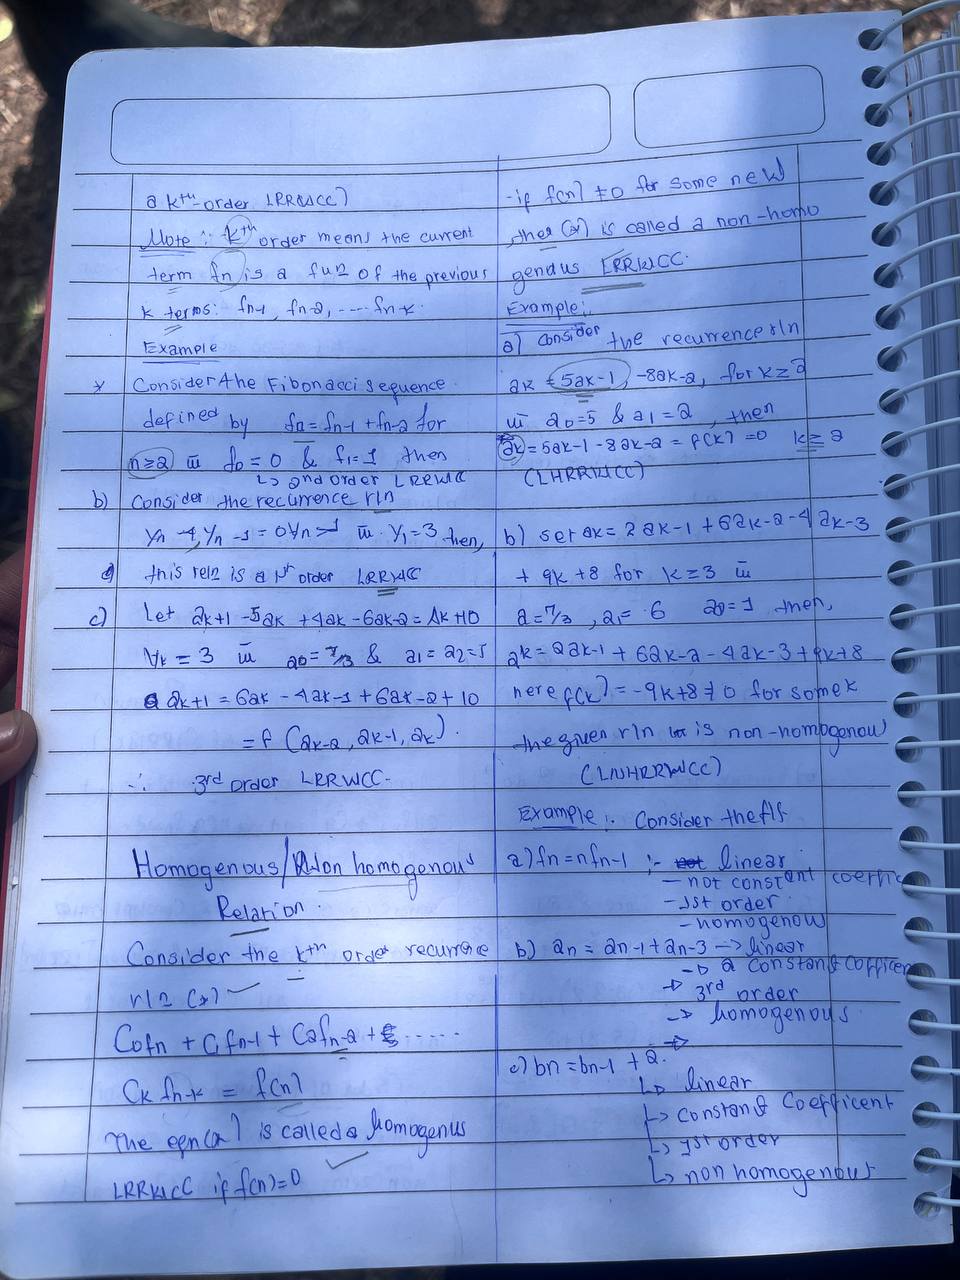 a kth-order LRRWCC)
Note :- kth order means the current
term fn is a fun of the previous
k terms: fn-1, fn-2, ---- fn-k.
Example
* Consider the Fibonacci sequence
defined by fn = fn-1 + fn-2 for
n≥2 w̄ f0 = 0 & f1 = 1 then
↳ 2nd order LRRWCC
b) Consider the recurrence rln
yn - 4yn-1 = 0 ∀n > 1 w̄ y1 = 3 then,
this reln is a 1st order LRRWCC
c) Let ak+1 - 5ak + 4ak - 6ak-2 = 4k + 10
∀k = 3 w̄ a0 = 7/3 & a1 = a2 = 5
ak+1 = 6ak - 4ak-1 + 6ak-2 + 10
= f (ak-2, ak-1, ak).
∴ 3rd order LRRWCC.
Homogenous/Non homogonous
Relation.
Consider the kth order recurrene
rln (*)
C0fn + C1fn-1 + C2fn-2 + ......
Ck fn-k = f(n)
The eqn (*) is called a homogenus
LRRWCC if f(n) = 0
- if f(n) ≠ 0 for some n ∈ W
then (*) is called a non-homo
genous LRRWCC.
Example:-
a) consider the recurrence rln
ak = 5ak-1, -8ak-2, for k≥2
w̄ a0 = 5 & a1 = 2, then
ak = 5ak-1 - 8ak-2 = f(k) = 0 k≥2
(LHRRWCC)
b) set ak = 2ak-1 + 6ak-2 - 4ak-3
+ 9k + 8 for k≥3 w̄
a = 7/3, a1 = 6 a0 = 1 then,
ak = 2ak-1 + 6ak-2 - 4ak-3 + 9k + 8
here f(k) = -9k + 8 ≠ 0 for some k
the given rln is non-homogenou
(LNHRRWCC)
Example :- Consider the fls
a) fn = nfn-1 :- linear
- not constant coeffic
- 1st order
- homogenou
b) an = an-1 + an-3 → linear
→ a constant cofficen
→ 3rd order
→ homogenous
c) bn = bn-1 + 2.
↳ linear
↳ constant coefficent
↳ 1st order
↳ non homogenous